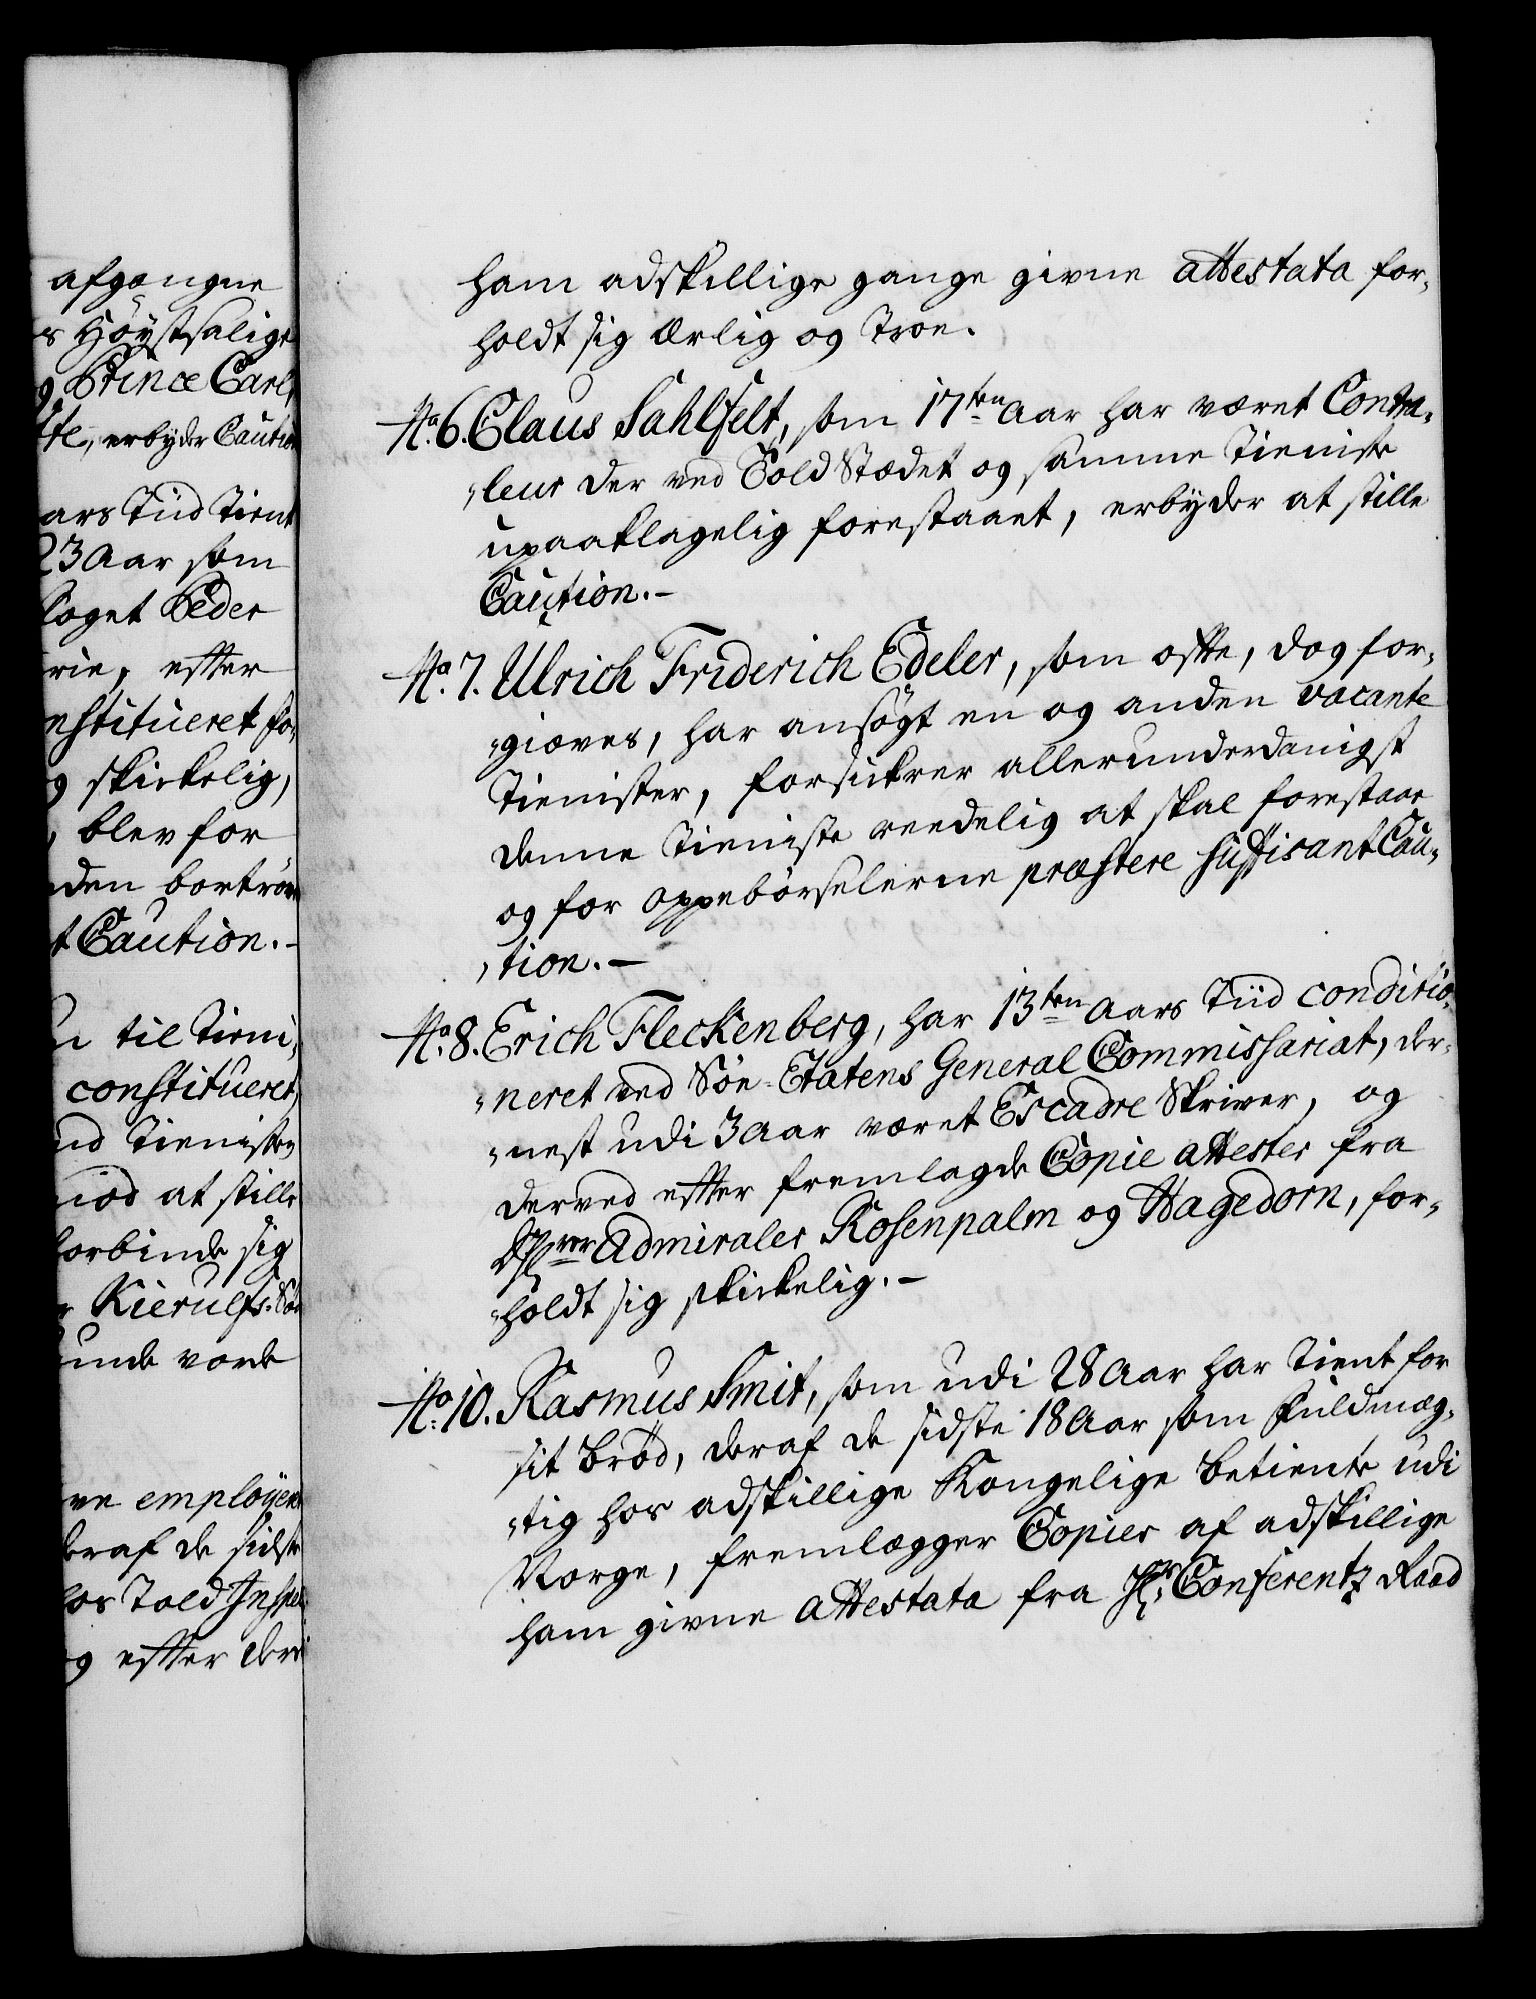 afgangne
s Høystsalige
g Prince Carls
tte, erbyder Caution
aars Tiid Tient
23 Aar som
Peder
rie, efter
nstitueret fo-
g skickelig,
, blev for
den bortrøm
t Caution.-
til Tieni,
constitueret,
nd Tienisten
mod at stille
forbinde sig
r Kierulfs Sø
unde vorde
ve employeret
deraf de sidste
hos Told Inspec
g efter der
ham adskillige gange givne attestata for-
holdt sig Ærlig og Troe.
No. 6. Claus Sahlfelt, som 17ten Aar har været Contra-
"leur der ved Told Stædet og samme Tieniste
upaaklagelig forestaaet, erbyder at stille
Caution.-
No. 7. Ulrich Friderich Edeler, som offte, dog for-
"giæves, har ansøgt en og anden vacante
Tienister, forsikrer allerunderdanigst
denne Tieniste reedelig at skal forestaae
og for oppebørselerne præstere suffisant Cau-
"tion.-
No. 8. Erich Fleckenberg, har 13ten Aars Tiid conditio-
"neret ved Søe-Etatens General Commissariat, der-
"nest udi 3 Aar været Escadre Skriver, og
derved efter fremlagde Copie attester fra
Hrer Admiraler Rosenpalm og Hagedorn, for-
"holdt sig skickelig.-
No. 10. Rasmus Smit, som udi 28 Aar har tient for
sit brød, deraf de sidste 18 Aar som Fuldmæg-
"tig hos adskillige Kongelige betiente udi
Norge, fremlægger Copier af adskillige
ham givne attestata fra Hr. Conferentz Raad